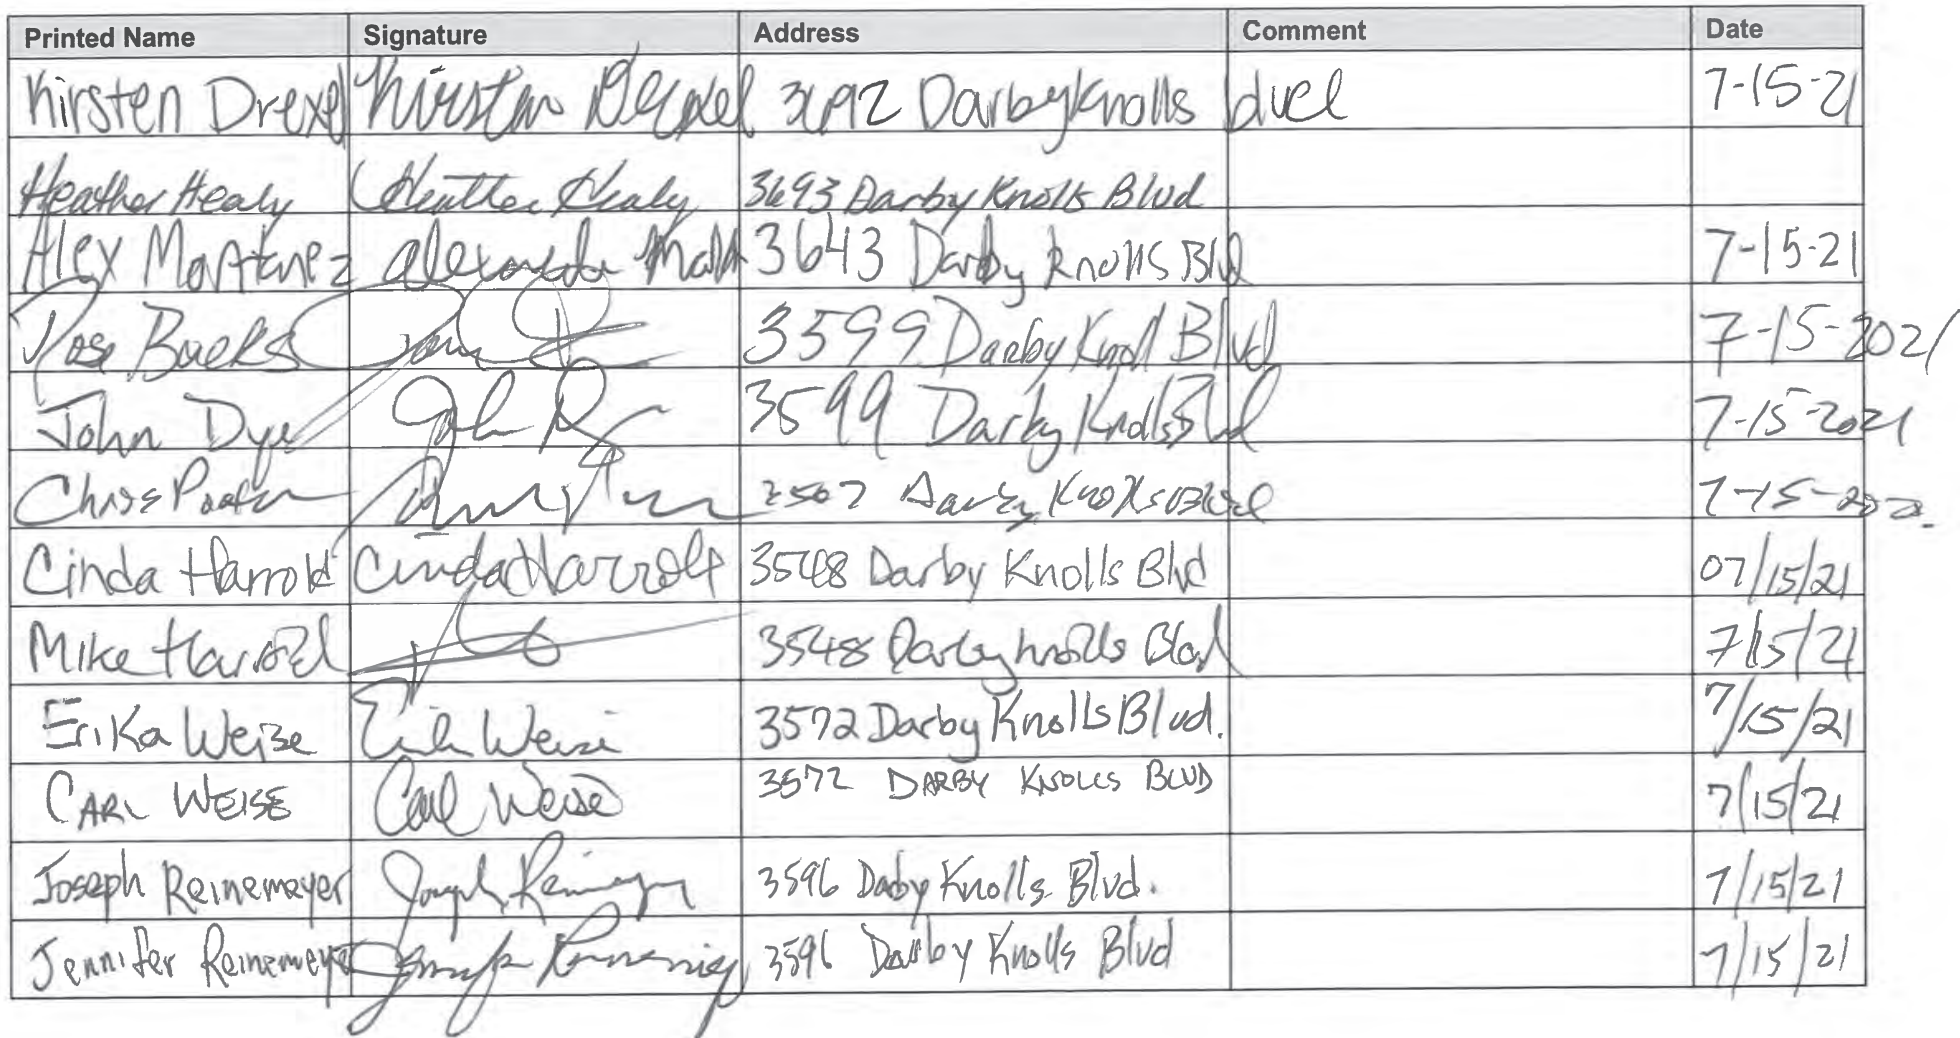 Printed Name Signature Address Comment Date
Kirsten Drexel Kirsten Drexel 3692 Darby Knolls blvd 7-15-21
Heather Healy Heather Healy 3693 Darby Knolls Blvd
Alex Martinez 3643 Darby Knolls Blvd 7-15-21
Rose Backs 3599 Darby Knoll Blvd 7-15-2021
John Dye John 3599 Darby Knolls Blvd 7-15-2021
Darby Knolls Blvd
Cinda Harrold Cinda Harrold 3548 Darby Knolls Blvd 07/15/21
Mike Harrold 3548 Darby Knolls Blvd 7/15/21
Erika Weise Erika Weise 3572 Darby Knolls Blvd. 7/15/21
CARL WEISE Carl Weise 3572 DARBY KNOLLS BLVD 7/15/21
Joseph Reinemeyer Joseph Reinemeyer 3596 Darby Knolls Blvd. 7/15/21
Jennifer Reinemeyer 3596 Darby Knolls Blvd 7/15/21